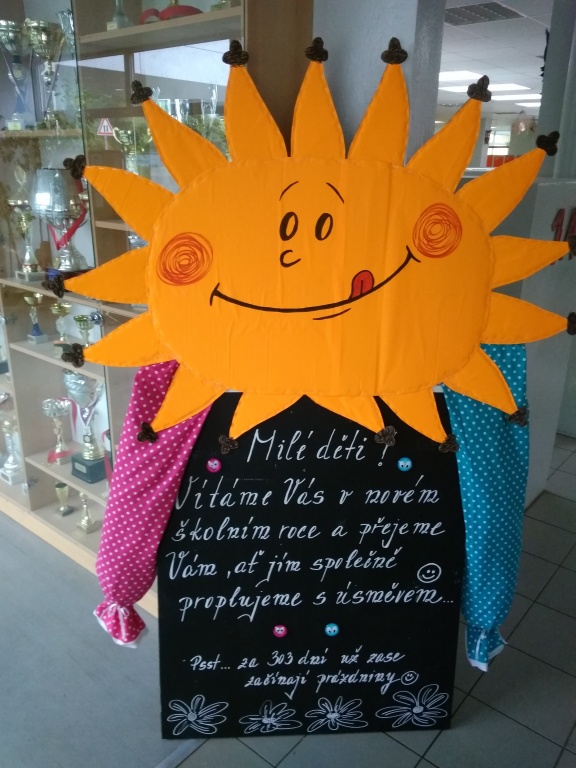 Milé děti !
Vítáme Vás v novém
školním roce a přejeme
Vám , ať jím společně
proplujeme s úsměvem...
Psst... za 303 dní už zase
začínají prázdniny